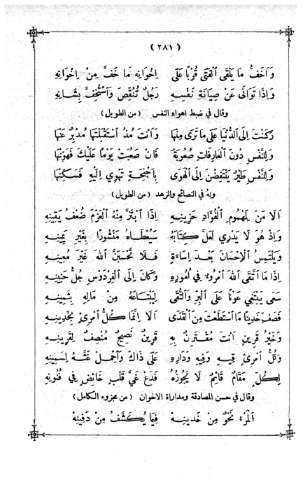 (٢٨١)
وَأَخَفُّ مَا يَلْقَى الْفَتَى قُرْبًا عَلَى إِخْوَانِهِ مَا خَفَّ مِنْ إِخْوَانِهِ
وَإِذَا تَوَانَى عَنْ صِيَانَةِ نَفْسِهِ رَجُلٌ تُنُقِّصَ وَاسْتُخِفَّ بِشَانِهِ
وقال في ضبط اهواء النفس (من الطويل)
رَكَنْتَ إِلَى الدُّنْيَا عَلَى مَا تَرَى مِنْهَا وَأَنْتَ مُذِ اسْتَقْبَلْتَهَا مُدْبِرٌ عَنْهَا
وَلِلنَّفْسِ دُونَ الْعَارِفَاتِ صُعُوبَةٌ فَإِنْ صَعُبَتْ يَوْمًا عَلَيْكَ فَهَوِّنْهَا
وَلِلنَّفْسِ طَيْرٌ يَنْتَفِضْنَ إِلَى الْهَوَى بِأَجْنِحَةٍ تَهْوِي إِلَيْهِ فَسَكِّنْهَا
وله في النصائح والزهد (من الطويل)
أَلَا مَنْ لِمَهْمُومِ الْفُؤَادِ حَزِينِهِ إِذَا ابْتَزَّ مِنْهُ الْعَزْمَ ضُعْفُ يَقِينِهِ
وَإِذْ هُوَ لَا يَدْرِي لَعَلَّ كِتَابَهُ سَيُعْطَاهُ مَنْشُورًا بِغَيْرِ يَمِينِهِ
وَيَلْتَمِسُ الْإِحْسَانَ بَعْدَ إِسَاءَةٍ فَلَا تَحْسَبَنَّ اللهَ غَيْرَ مُعِينِهِ
إِذَا مَا اتَّقَى اللهَ امْرُؤٌ فِي أُمُورِهِ وَكَانَ إِلَى الْفِرْدَوْسِ جُلُّ حَنِينِهِ
سَعَى يَبْتَغِي عَوْنًا عَلَى الْبِرِّ وَالتُّقَى لِيَبْتَاعَهُ مِنْ مَالِهِ بِثَمِينِهِ
فَصَفِّ خَدِينًا مَا اسْتَطَعْتَ مِنَ الْقَذَى أَلَا إِنَّمَا كُلُّ امْرِئٍ بِخَدِينِهِ
وَخَيْرُ قَرِينٍ أَنْتَ مُقْتَرِنٌ بِهِ قَرِينٌ نَصِيحٌ مُنْصِفٌ لِقَرِينِهِ
وَكُلُّ امْرِئٍ فِيهِ وَفِيهِ وَدَارِهِ عَلَى ذَاكَ وَاحْمِلْ غَثَّهُ لِسَمِينِهِ
لِكُلِّ مَقَامٍ قَائِمٌ لَا يَجُوزُهُ فَدَعْ غَيَّ قَلْبٍ خَائِضٍ فِي فُنُونِهِ
وقال في حسن المصادقة ومداراة الاخوان (من مجزوء الكامل)
الْمَرْءُ نَحْوٌ مِنْ خَدِينِهِ فِيمَا يُكَشَّفُ مِنْ دَفِينِهِ